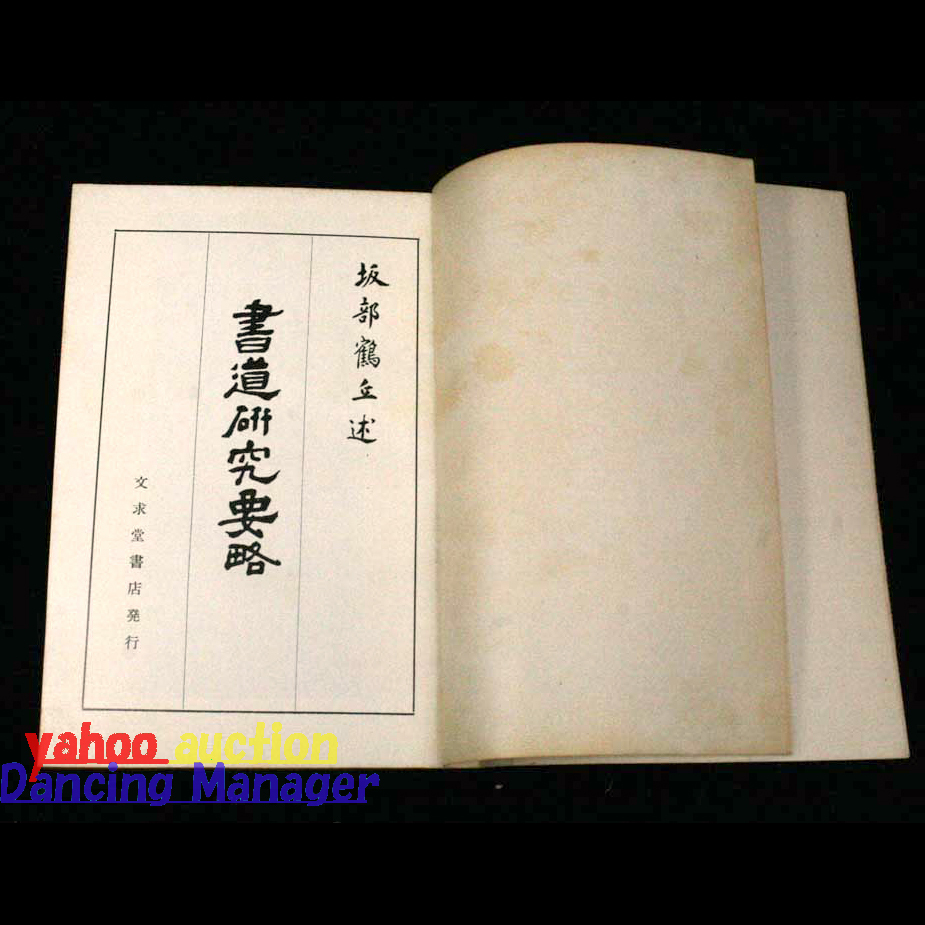 坂部鶴丘述
書道研究要略
文求堂書店発行
yahoo auction
Dancing Manager